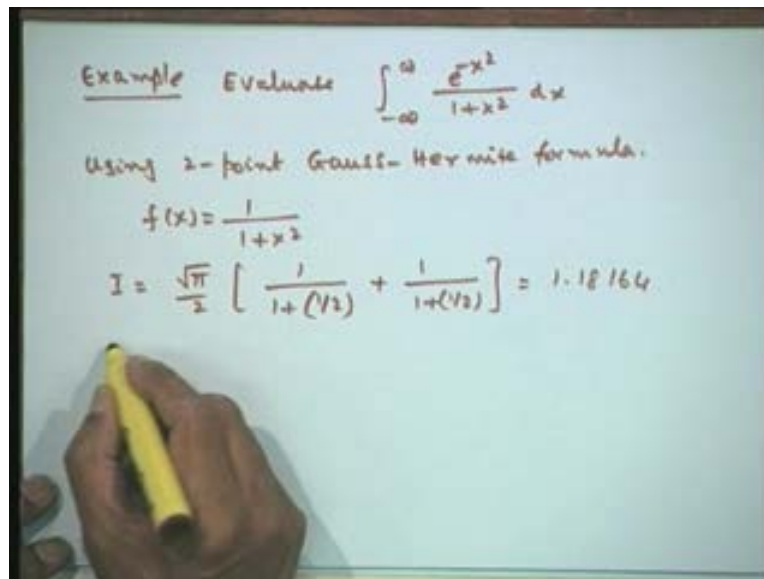 Example Evaluate ∫_{-∞}^{∞} e^{-x^2}/(1+x^2) dx
Using 2-point Gauss-Hermite formula.
f(x) = 1/(1+x^2)
I = √π/2 [ 1/(1+(1/2)) + 1/(1+(1/2)) ] = 1.18164